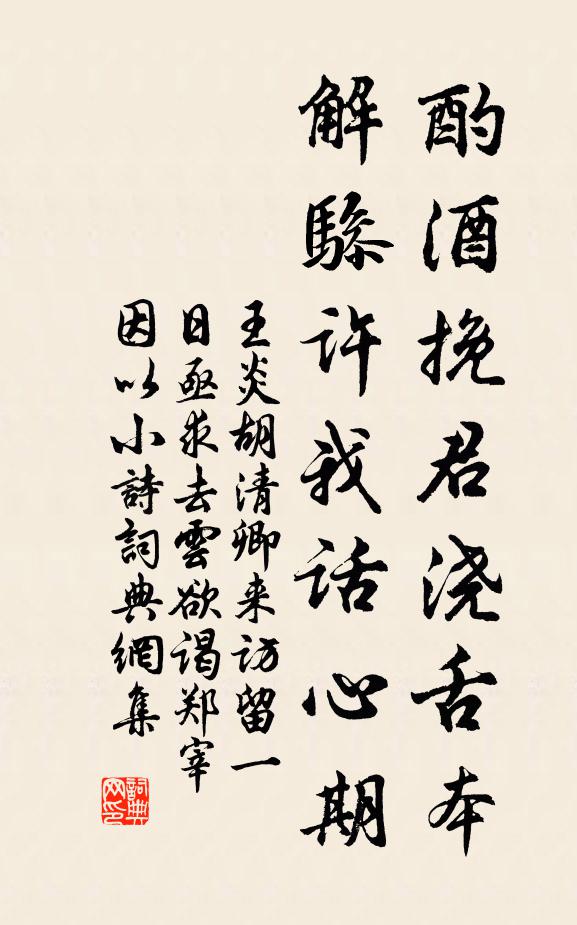 酌酒挽君浇舌本
解驂许我话心期
王炎胡清卿来访留一
日亟求去雲欲谒郑宰
因以小詩詞典網集
詞典
网印